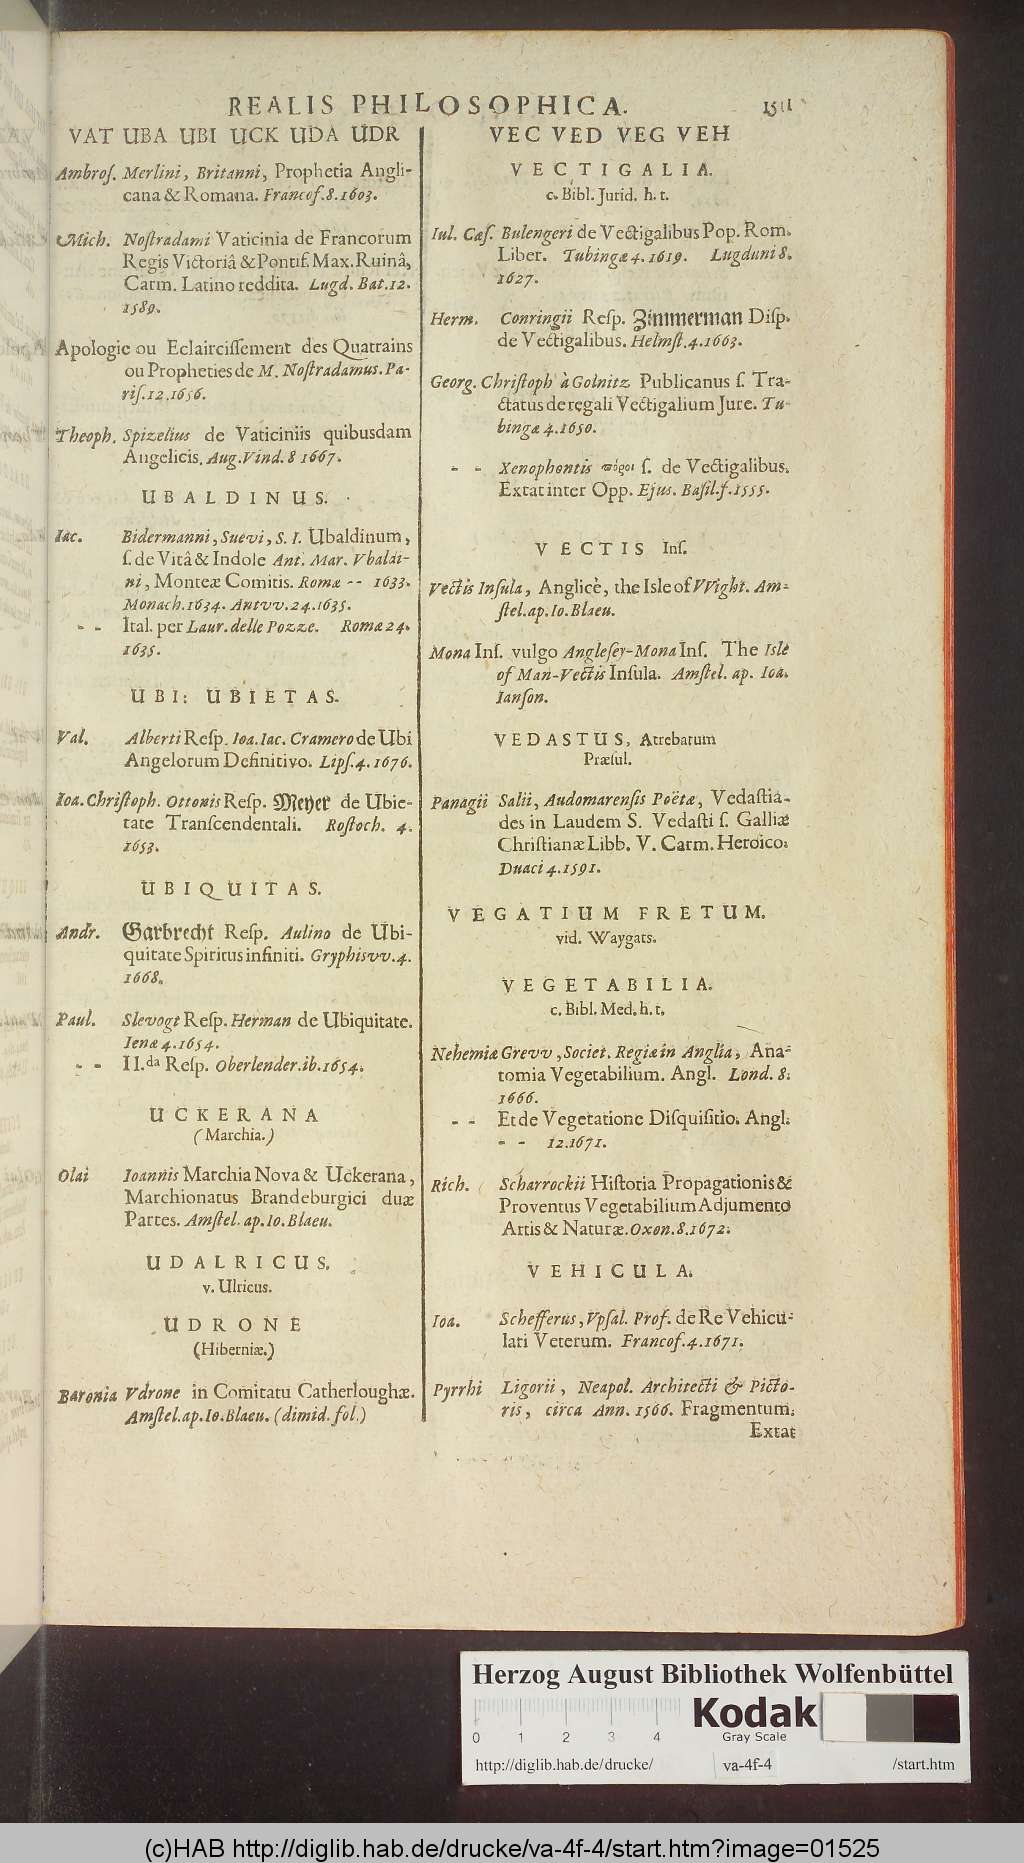 REALIS PHILOSOPHICA. 1511
VAT UBA UBI UCK UDA UDR
Ambroſ. Merlini, Britanni, Prophetia Angli-
cana & Romana. Francof. 8. 1603.
Mich. Noſtradami Vaticinia de Francorum
Regis Victoriâ & Pontif. Max. Ruinâ,
Carm. Latino reddita. Lugd. Bat. 12.
1589.
Apologie ou Eclairciſſement des Quatrains
ou Propheties de M. Noſtradamus. Pa-
riſ. 12. 1656.
Theoph. Spizelius de Vaticiniis quibusdam
Angelicis. Aug. Vind. 8 1667.
UBALDINUS.
Iac. Bidermanni, Suevi, S. I. Ubaldinum,
ſ. de Vitâ & Indole Ant. Mar. Vbaldi-
ni, Monteæ Comitis. Romæ -- 1633.
Monach. 1634. Antvv. 24. 1635.
- - Ital. per Laur. delle Pozze. Romæ 24.
1635.
UBI: UBIETAS.
Val. Alberti Reſp. Ioa. Iac. Cramero de Ubi
Angelorum Definitivo. Lipſ. 4. 1676.
Ioa. Chriſtoph. Ottonis Reſp. Meyer de Ubie-
tate Tranſcendentali. Roſtoch. 4.
1653.
UBIQUITAS.
Andr. Garbrecht Reſp. Aulino de Ubi-
quitate Spiritus infiniti. Gryphisvv. 4.
1668.
Paul. Slevogt Reſp. Herman de Ubiquitate.
Ienæ 4. 1654.
- - II.da Reſp. Oberlender. ib. 1654.
UCKERANA
(Marchia.)
Olai Ioannis Marchia Nova & Uckerana,
Marchionatus Brandeburgici duæ
Partes. Amſtel. ap. Io. Blaeu.
UDALRICUS.
v. Ulricus.
UDRONE
(Hiberniæ.)
Baronia Vdrone in Comitatu Catherloughæ.
Amſtel. ap. Io. Blaeu. (dimid. fol.)
VEC VED VEG VEH
VECTIGALIA.
c. Bibl. Jurid. h. t.
Iul. Cæſ. Bulengeri de Vectigalibus Pop. Rom.
Liber. Tubingæ 4. 1619. Lugduni 8.
1627.
Herm. Conringii Reſp. Zimmerman Diſp.
de Vectigalibus. Helmſt. 4. 1663.
Georg. Chriſtoph à Golnitz Publicanus ſ. Tra-
ctatus de regali Vectigalium Jure. Tu-
bingæ 4. 1650.
- - Xenophontis πόροι ſ. de Vectigalibus.
Extat inter Opp. Ejus. Baſil. f. 1555.
VECTIS Inſ.
Vectis Inſula, Anglicè, the Isle of VVight. Am-
ſtel. ap. Io. Blaeu.
Mona Inſ. vulgo Angleſey-Mona Inſ. The Isle
of Man-Vectis Inſula. Amſtel. ap. Ioa.
Ianſon.
VEDASTUS, Atrebatum
Præſul.
Panagii Salii, Audomarenſis Poëtæ, Vedaſtia-
des in Laudem S. Vedaſti ſ. Galliæ
Chriſtianæ Libb. V. Carm. Heroico.
Duaci 4. 1591.
VEGATIUM FRETUM.
vid. Waygats.
VEGETABILIA.
c. Bibl. Med. h. t.
Nehemiæ Grevv, Societ. Regiæ in Anglia, Ana-
tomia Vegetabilium. Angl. Lond. 8.
1666.
- - Et de Vegetatione Diſquiſitio. Angl.
- - 12. 1671.
Rich. Scharrockii Hiſtoria Propagationis &
Proventus Vegetabilium Adjumento
Artis & Naturæ. Oxon. 8. 1672.
VEHICULA.
Ioa. Schefferus, Vpſal. Prof. de Re Vehicu-
lari Veterum. Francof. 4. 1671.
Pyrrhi Ligorii, Neapol. Architecti & Picto-
ris, circa Ann. 1566. Fragmentum.
Extat
Herzog August Bibliothek Wolfenbüttel
0 1 2 3 4
Kodak
Gray Scale
http://diglib.hab.de/drucke/ va-4f-4 /start.htm
(c)HAB http://diglib.hab.de/drucke/va-4f-4/start.htm?image=01525